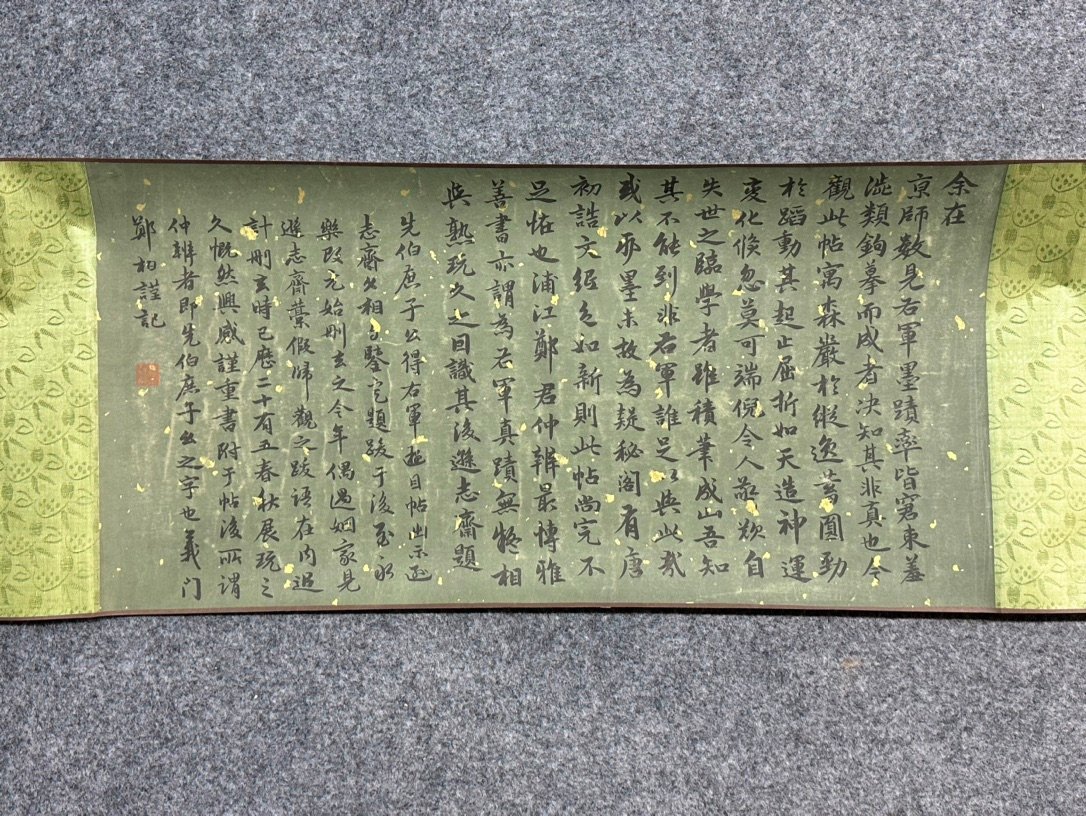 余在
京師数見右軍墨蹟率皆窘束羞
澁類鉤摹而成者决知其非真也今
觀此帖寓森嚴於縱逸蓄圓勁
於蹈動其起止屈折如天造神運
变化倏忽莫可端倪令人敬歎自
失世之臨學者雖積筆成山吾知
其不能到非右軍誰足以與此哉
或以爲墨未故為疑秘閣有唐
初誥文絹色如新則此帖尚完不
足恠也浦江鄭君仲辨最博雅
善書亦謂為右軍真蹟無疑相
與熟玩久之因識其後遜志齋題
先伯庶子公得右軍遊目帖出示
志齋公相與鑒定題跋于後至永
樂改元始刪去之今年偶過姻家見
遜志齋藁假歸觀之跋語在內追
計刪去時已歷二十有五春秋展玩之
久慨然興感謹重書附于帖後所謂
仲辨者即先伯庶子公之字也義门
鄭柏謹記